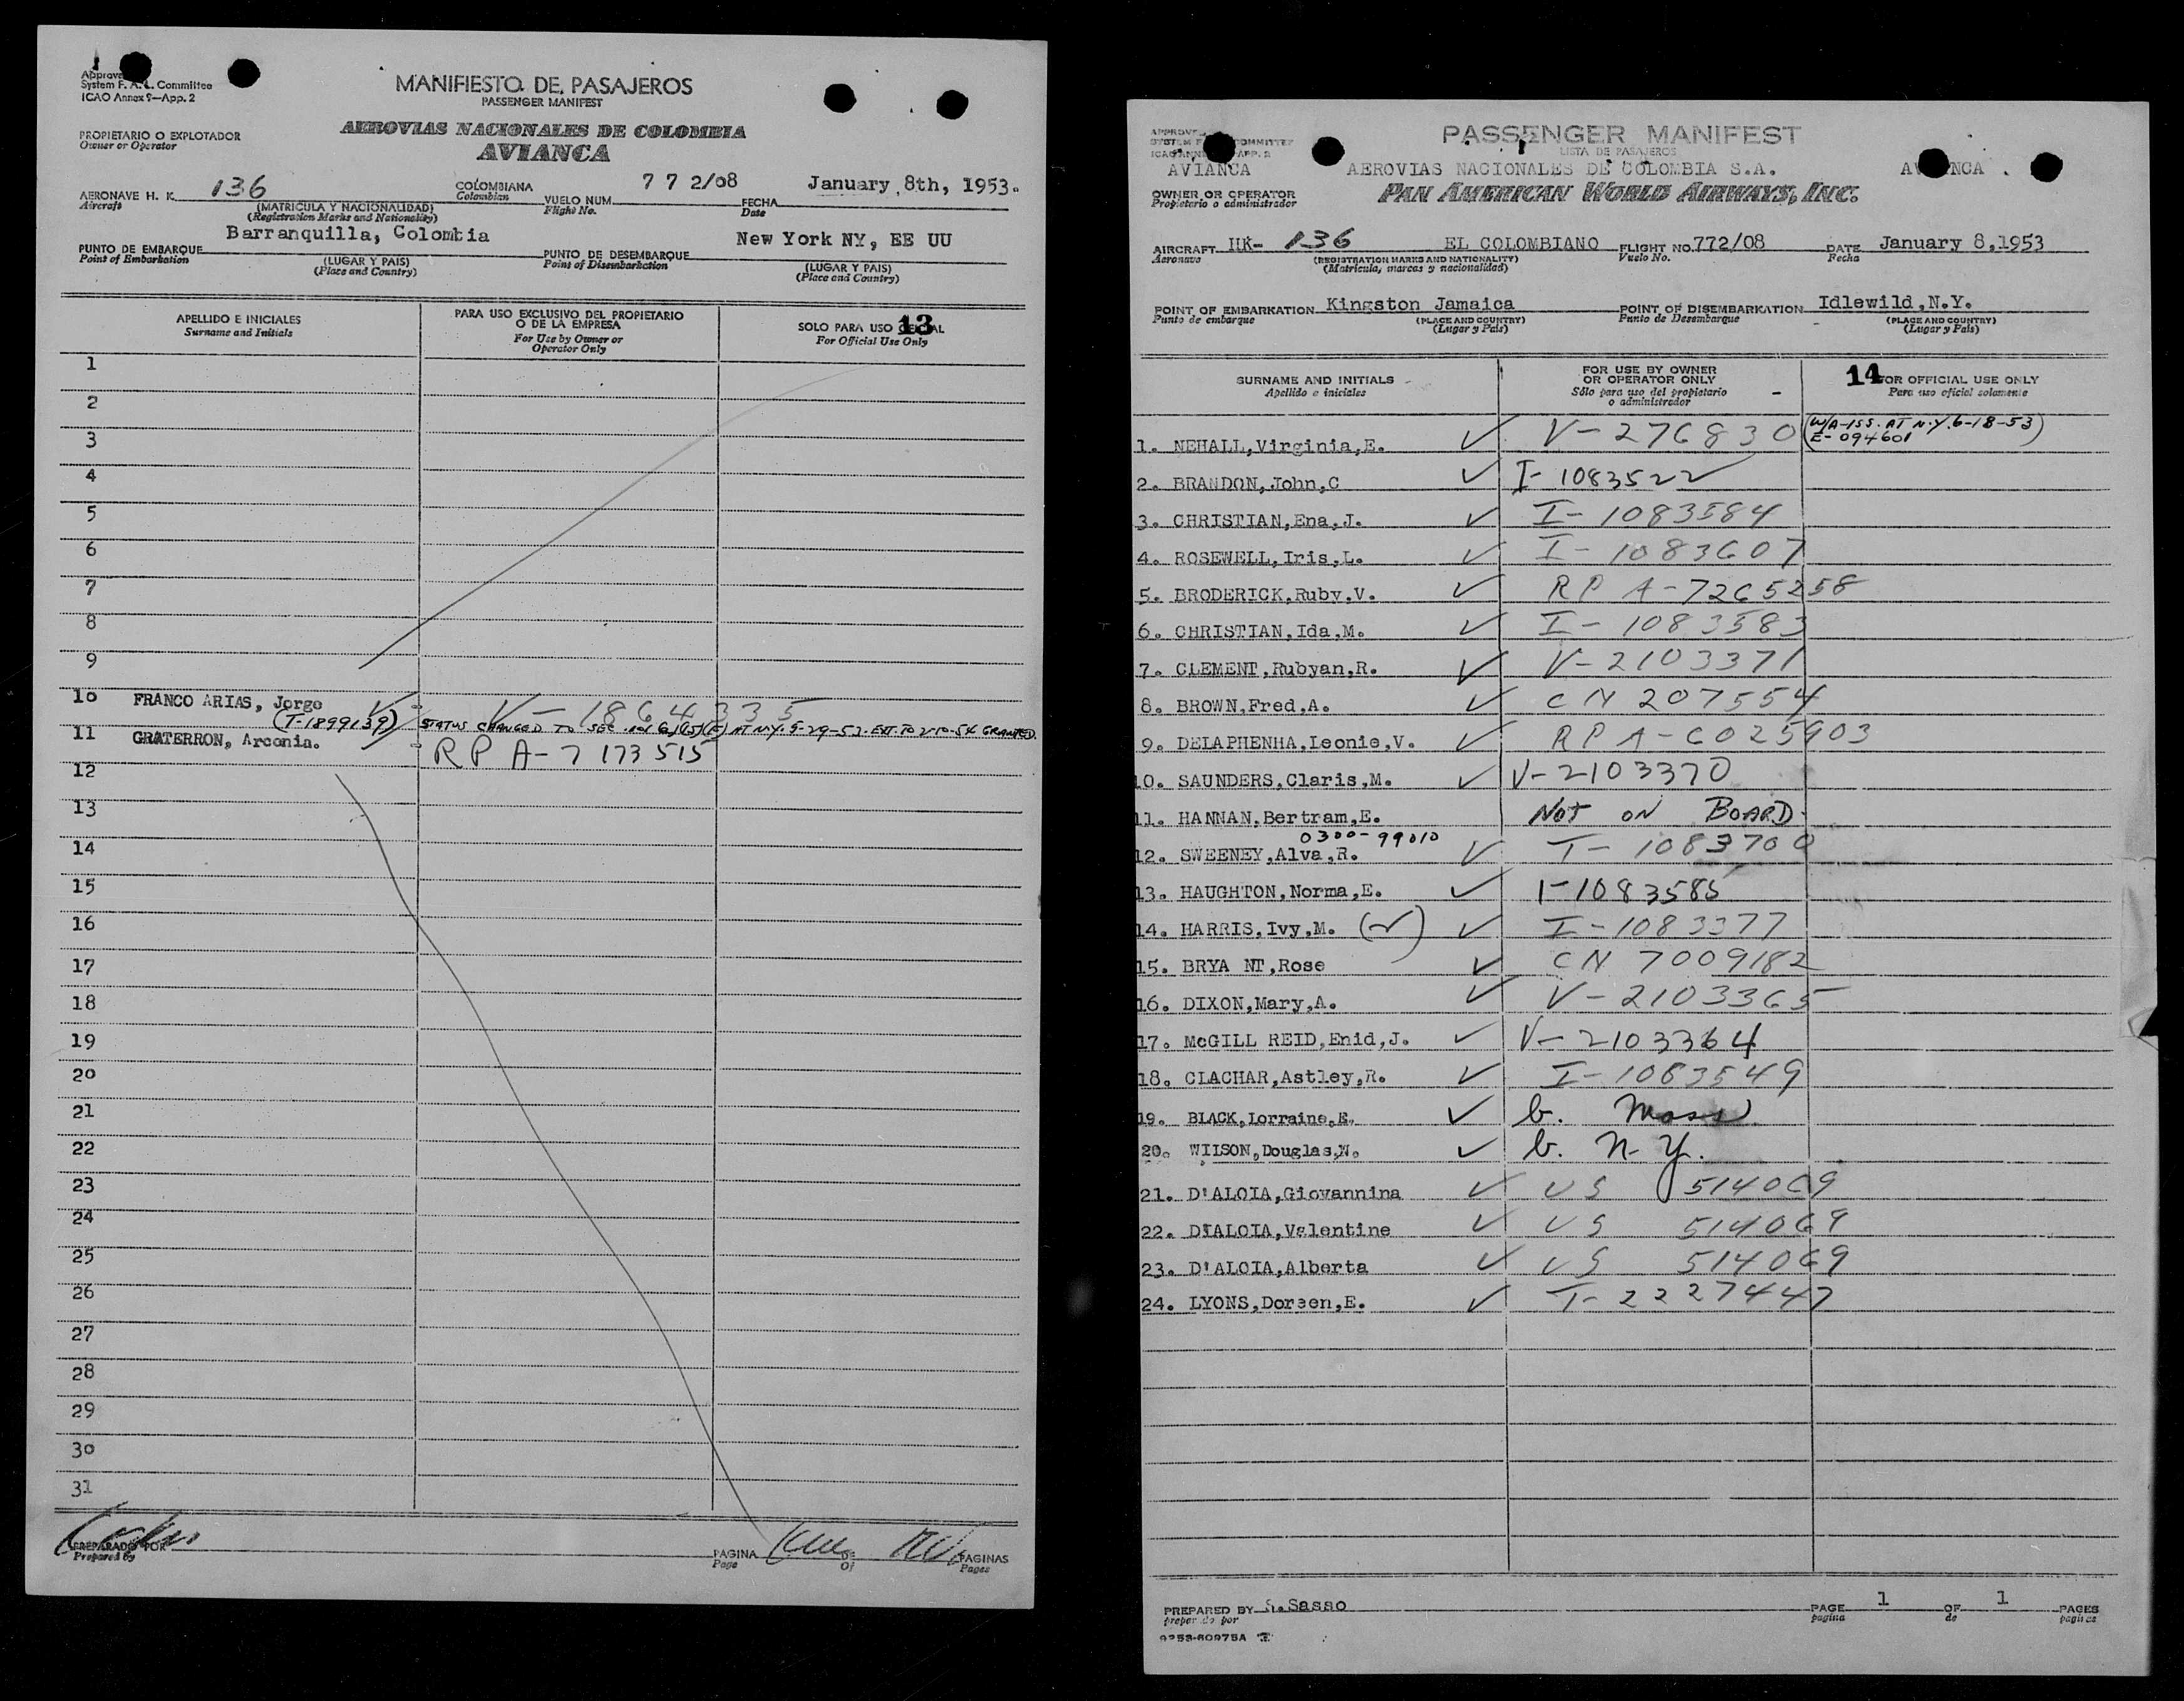 Approved
System F. A. L. Committee
ICAO Annex 9—App. 2
MANIFIESTO DE PASAJEROS
PASSENGER MANIFEST
PROPIETARIO O EXPLOTADOR
Owner or Operator
AEROVIAS NACIONALES DE COLOMBIA
AVIANCA
AERONAVE H. K. 136 COLOMBIANA VUELO NUM. 7 7 2/08 FECHA January 8th, 1953.
Aircraft (MATRICULA Y NACIONALIDAD) Colombian Flight No. Date
(Registration Marks and Nationality)
PUNTO DE EMBARQUE Barranquilla, Colombia PUNTO DE DESEMBARQUE New York NY, EE UU
Point of Embarkation (LUGAR Y PAIS) Point of Disembarkation (LUGAR Y PAIS)
(Place and Country) (Place and Country)
APELLIDO E INICIALES PARA USO EXCLUSIVO DEL PROPIETARIO SOLO PARA USO 13
Surname and Initials O DE LA EMPRESA For Official Use Only
For Use by Owner or
Operator Only
1
2
3
4
5
6
7
8
9
10 FRANCO ARIAS, Jorge V-1864335
(T-1899139) STATUS CHANGED TO SEC. AT N.Y. EXT. TO 2-10-54 GRANTED.
11 GRATERRON, Arconia. R P A-7 173 515
12
13
14
15
16
17
18
19
20
21
22
23
24
25
26
27
28
29
30
31
PREPARADO POR PAGINA DE PAGINAS
Prepared by Page Of Pages
PASSENGER MANIFEST
LISTA DE PASAJEROS
AVIANCA AEROVIAS NACIONALES DE COLOMBIA S.A. AVIANCA
OWNER OR OPERATOR PAN AMERICAN WORLD AIRWAYS, INC.
Propietario o administrador
AIRCRAFT HK- 136 EL COLOMBIANO FLIGHT NO. 772/08 DATE January 8,1953
Aeronave (REGISTRATION MARKS AND NATIONALITY) Vuelo No. Fecha
(Matricula, marcas y nacionalidad)
POINT OF EMBARKATION Kingston Jamaica POINT OF DISEMBARKATION Idlewild,N.Y.
Punto de embarque (PLACE AND COUNTRY) Punto de Desembarque (PLACE AND COUNTRY)
(Lugar y País) (Lugar y País)
SURNAME AND INITIALS FOR USE BY OWNER 14 FOR OFFICIAL USE ONLY
Apellido e iniciales OR OPERATOR ONLY Para uso oficial solamente
Sólo para uso del propietario
o administrador
1. NEHALL,Virginia,E. V-276830 (W/A-ISS. AT N.Y. 6-18-53)
E-094601
2. BRANDON,John,C I-1083522
3. CHRISTIAN,Ena,J. I-1083584
4. ROSEWELL,Iris,L. I-1083607
5. BRODERICK,Ruby,V. RP A-7265258
6. CHRISTIAN,Ida,M. I-1083583
7. CLEMENT,Rubyan,R. V-2103371
8. BROWN,Fred,A. CN 207554
9. DELAPHENHA,Leonie,V. RP A-6025903
10. SAUNDERS,Claris,M. V-2103370
11. HANNAN,Bertram,E. NOT ON BOARD.
0300-99010
12. SWEENEY,Alva,R. I-1083700
13. HAUGHTON,Norma,E. I-1083585
14. HARRIS,Ivy,M. I-1083377
15. BRYA NT,Rose CN 7009182
16. DIXON,Mary,A. V-2103365
17. McGILL REID,Enid,J. V-2103364
18. CLACHAR,Astley,R. I-1083549
19. BLACK,Lorraine,E. b. Mass
20. WILSON,Douglas,W. b. N.Y.
21. D'ALOIA,Giovannina US 514069
22. D'ALOIA,Valentine US 514069
23. D'ALOIA,Alberta US 514069
24. LYONS,Doreen,E. I-2227447
PREPARED BY S.Sasso PAGE 1 OF 1 PAGES
preparado por pagina de paginas